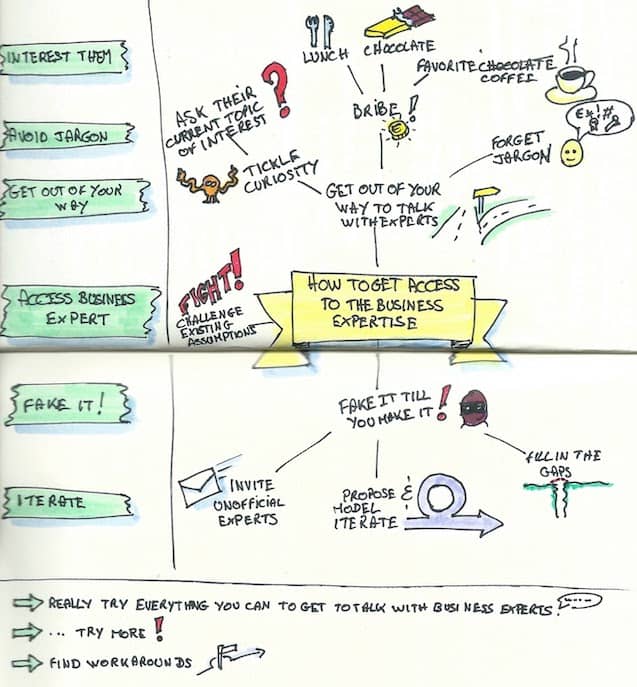 INTEREST THEM
AVOID JARGON
GET OUT OF YOUR
WAY
ACCESS BUSINESS
EXPERT
FAKE IT!
ITERATE
LUNCH
CHOCOLATE
FAVORITE CHOCOLATE
COFFEE
BRIBE!
ASK THEIR
CURRENT TOPIC
OF INTEREST
?
TICKLE
CURIOSITY
FORGET
JARGON
GET OUT OF YOUR
WAY TO TALK
WITH EXPERTS
FIGHT!
CHALLENGE
EXISTING
ASSUMPTIONS
HOW TO GET ACCESS
TO THE BUSINESS
EXPERTISE
FAKE IT TILL
YOU MAKE IT!
INVITE
UNOFFICIAL
EXPERTS
PROPOSE &
MODEL
ITERATE
FILL IN THE
GAPS
REALLY TRY EVERYTHING YOU CAN TO GET TO TALK WITH BUSINESS EXPERTS!
... TRY MORE!
FIND WORKAROUNDS